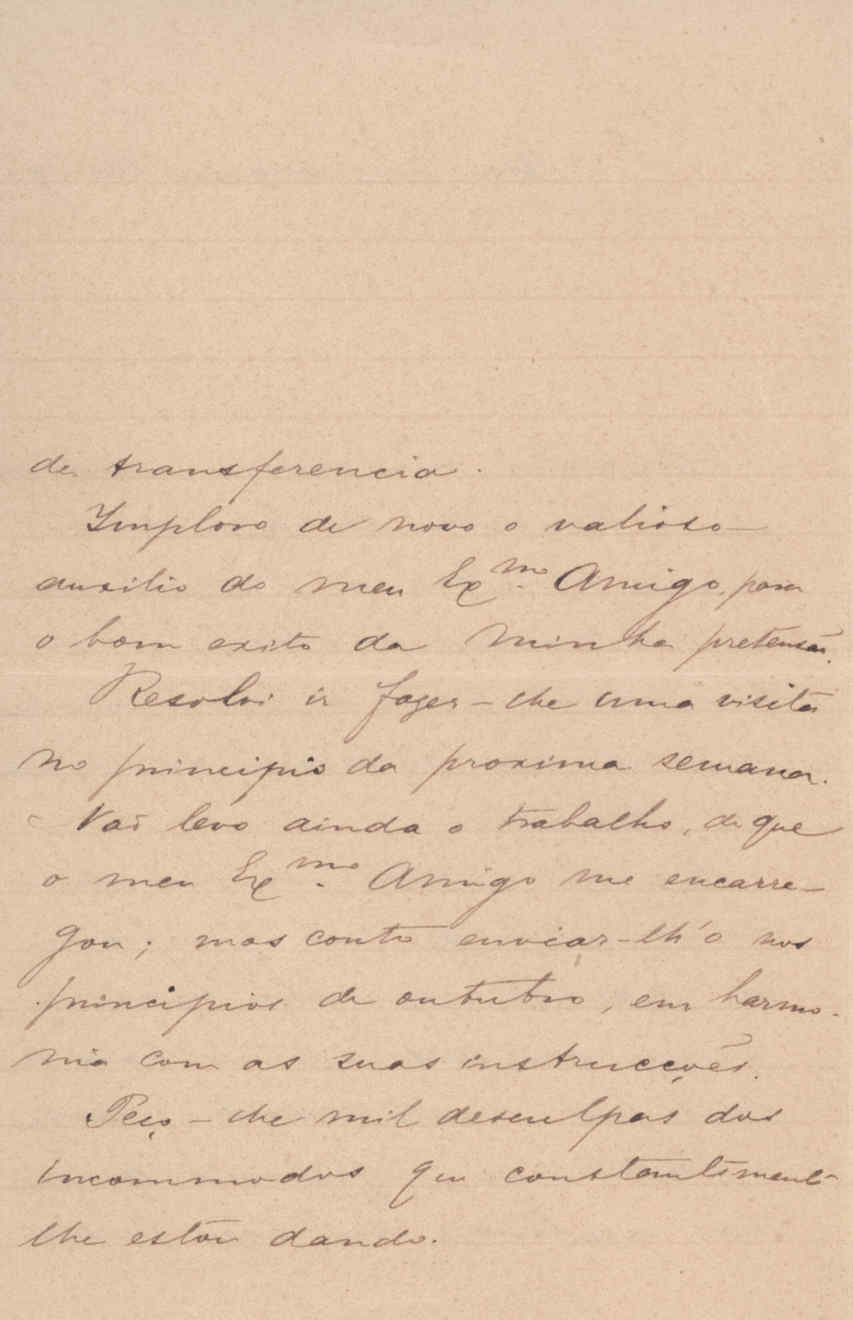 de transferencia.
Imploro de novo o valioso
auxilio do meu Ex.mo Amigo, para
o bom exito da minha pretensão.
Resolvi ir fazer-lhe uma visita
no principio da proxima semana.
Não levo ainda o trabalho, de que
o meu Ex.mo Amigo me encarre-
gou; mas conto enviar-lh'o nos
principios de outubro, em harmo-
nia com as suas instrucções.
Peço-lhe mil desculpas dos
incommodos que constantemente
lhe estou dando.